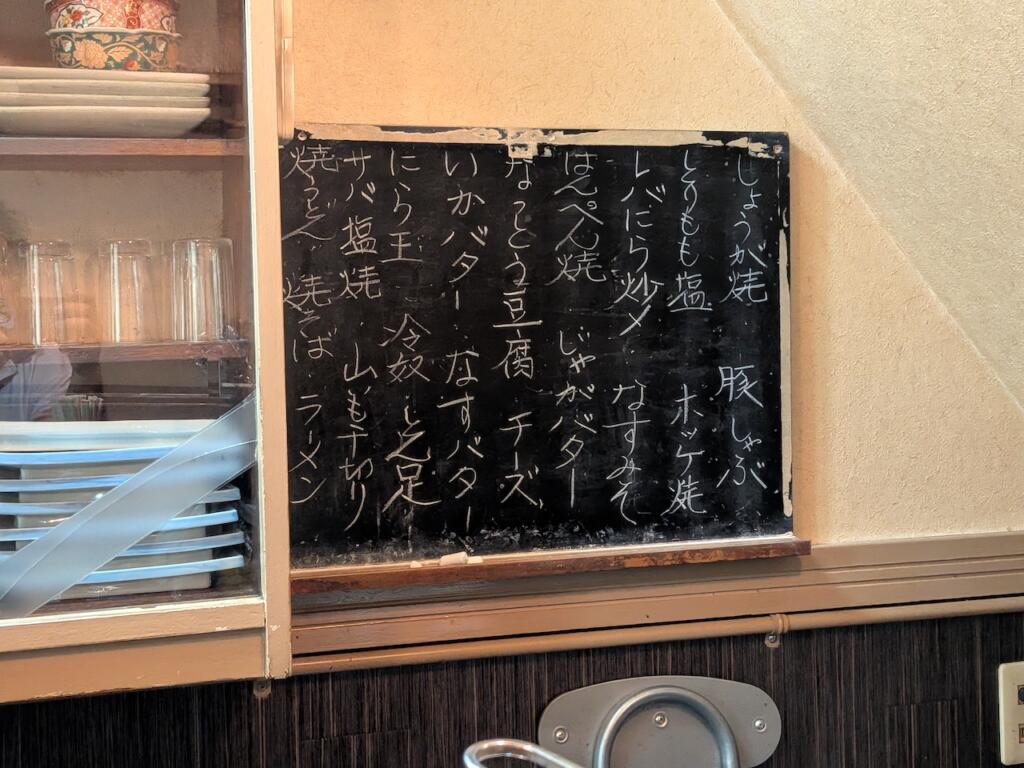 しょうが焼 豚しゃぶ
とりもも塩 ホッケ焼
レバにら炒メ なすみそ
はんぺん焼 じゃがバター
なっとう豆腐 チーズ
いかバター なすバター
にら玉 冷奴 とん足
サバ塩焼 山いも千切り
焼うどん 焼そば ラーメン